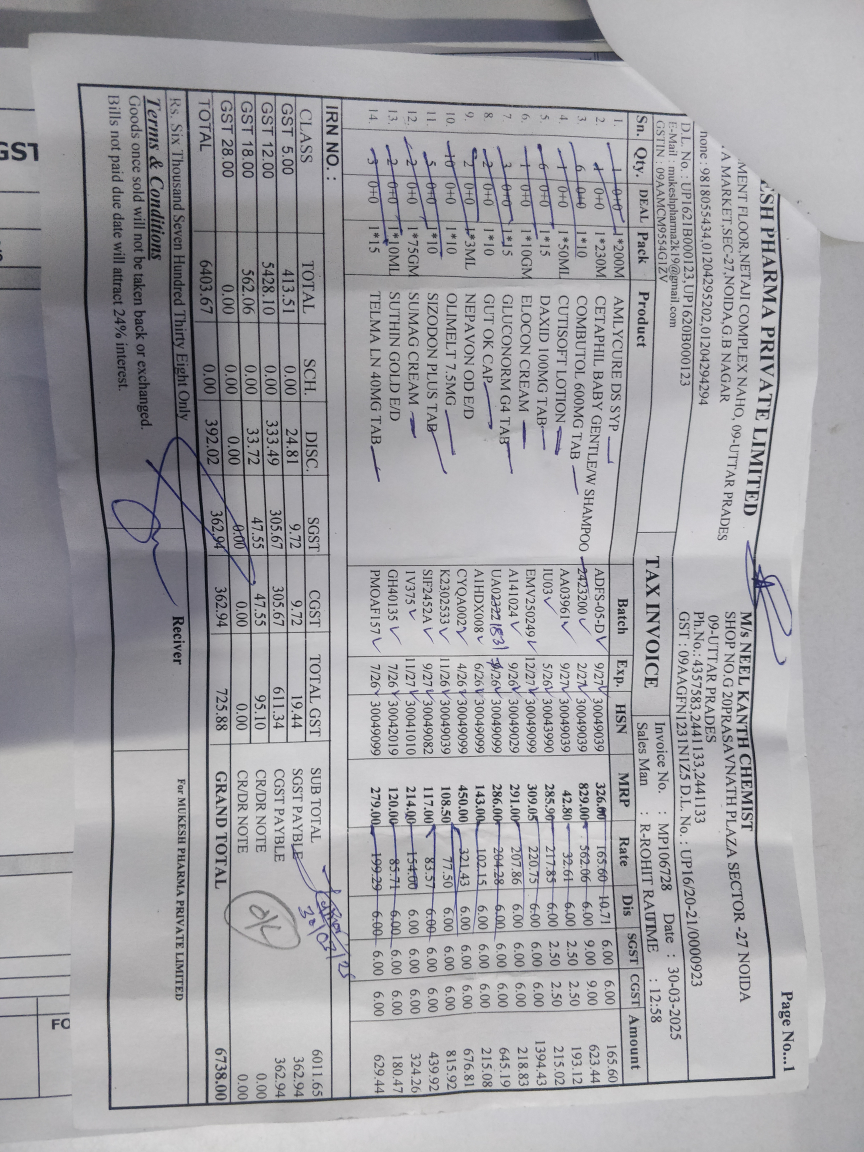 Page No...1
ESH PHARMA PRIVATE LIMITED
MENT FLOOR,NETAJI COMPLEX NAHO, 09-UTTAR PRADES
A MARKET,SEC-27,NOIDA,G.B NAGAR
none : 9818055434,01204295202,01204294294
D.L. No. : UP1621B000123,UP1620B000123
E-Mail : mukeshpharma2k19@gmail.com
GSTIN : 09AAMCM9554G1ZV
M/s NEEL KANTH CHEMIST
SHOP NO.G 20PRASAVNATH PLAZA SECTOR -27 NOIDA
09-UTTAR PRADES
Ph.No.: 4357583,2441133,2441133
GST : 09AAGFN1231N1Z5 D.L. No. : UP16/20-21/0000923
TAX INVOICE
Invoice No. : MP106728 Date : 30-03-2025
Sales Man : R-ROHIT RAI TIME : 12:58
Sn. Qty. DEAL Pack Product Batch Exp. HSN MRP Rate Dis SGST CGST Amount
1. 1 0+0 1*200M AMLYCURE DS SYP ADFS-05-D 9/27 30049039 326.00 165.60 10.71 6.00 6.00 165.60
2. 1 0+0 1*230M CETAPHIL BABY GENTLE/W SHAMPOO 2423200 2/27 30049039 829.00 562.06 6.00 9.00 9.00 623.44
3. 6 0+0 1*10 COMBUTOL 600MG TAB AA03961 9/27 30049039 42.80 32.61 6.00 2.50 2.50 193.12
4. 1 0+0 1*50ML CUTISOFT LOTION IU03 5/26 30043990 285.90 217.85 6.00 2.50 2.50 215.02
5. 6 0+0 1*15 DAXID 100MG TAB EMV250249 12/27 30049099 309.05 220.75 6.00 6.00 6.00 1394.43
6. 1 0+0 1*10GM ELOCON CREAM A141024 9/26 30049029 291.00 207.86 6.00 6.00 6.00 218.83
7. 3 0+0 1*15 GLUCONORM G4 TAB 9/26 30049099 286.00 204.28 6.00 6.00 6.00 645.19
8. 2 0+0 1*10 GUT OK CAP A1HDX008 6/26 30049099 143.00 102.15 6.00 6.00 6.00 215.08
9. 2 0+0 1*3ML NEPAVON OD E/D CYQA002 4/26 30049099 450.00 321.43 6.00 6.00 6.00 676.81
10. 10 0+0 1*10 OLIMELT 7.5MG K2302533 11/26 30049039 108.50 77.50 6.00 6.00 6.00 815.92
11. 5 0+0 1*10 SIZODON PLUS TAB SIF2452A 9/27 30049082 117.00 83.57 6.00 6.00 6.00 439.92
12. 2 0+0 1*75GM SUMAG CREAM 1V375 11/27 30041010 214.00 154.00 6.00 6.00 6.00 324.26
13. 2 0+0 1*10ML SUTHIN GOLD E/D GH40135 7/26 30042019 120.00 85.71 6.00 6.00 6.00 180.47
14. 3 0+0 1*15 TELMA LN 40MG TAB PMOAF157 7/26 30049099 279.00 199.29 6.00 6.00 6.00 629.44
IRN NO. :
CLASS TOTAL SCH. DISC. SGST CGST TOTAL GST
GST 5.00 413.51 0.00 24.81 9.72 9.72 19.44
GST 12.00 5428.10 0.00 333.49 305.67 305.67 611.34
GST 18.00 562.06 0.00 33.72 47.55 47.55 95.10
GST 28.00 0.00 0.00 0.00 0.00 0.00 0.00
TOTAL 6403.67 0.00 392.02 362.94 362.94 725.88
SUB TOTAL 6011.65
SGST PAYBLE 362.94
CGST PAYBLE 362.94
CR/DR NOTE 0.00
CR/DR NOTE 0.00
GRAND TOTAL 6738.00
30/03/25
OK
Rs. Six Thousand Seven Hundred Thirty Eight Only
Terms & Conditions
Goods once sold will not be taken back or exchanged.
Bills not paid due date will attract 24% interest.
Reciver
For MUKESH PHARMA PRIVATE LIMITED
GST
FO